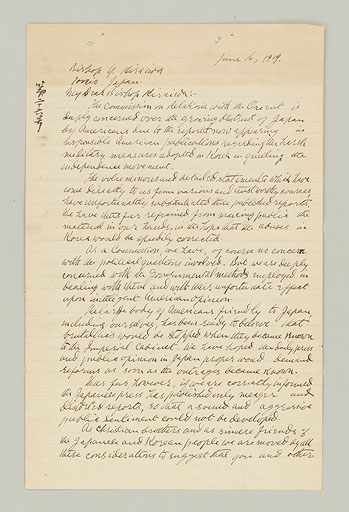 June 6, 1919.
Bishop Y. Hiraiwa
Tokio, Japan.
My dear Bishop Hiraiwa:-
The Commission on Relations with the Orient is
deeply concerned over the growing distrust of Japan
by Americans due to the reports now appearing in
responsible American publications regarding the harsh
military measures adopted in Korea in quelling the
independence movement.
The voluminous and detailed statements which have
come directly to us from various and trustworthy sources
have unfortunately substantiated these published reports
We have thus far refrained from making public the
material in our hands, in the hope that the abuses in
Korea would be speedily corrected.
As a Commission we have, of course no concern
with the political questions involved. But we are deeply
concerned with the Governmental methods employed in
dealing with them and with their unfortunate effect
upon intelligent American opinion.
The large body of Americans friendly to Japan,
including ourselves, has been ready to believe that
brutalities would be stopped when they became known
to the Imperial Cabinet. We have hoped that the press
and public opinion in Japan proper would demand
reforms as soon as the outrages became known.
Thus far however, if we are correctly informed
the Japanese press has published only meager and
belated reports, so that a sound and aggressive
public sentiment could not be developed.
As Christian brothers and as sincere friends of
the Japanese and Korean people we are moved by all
these considerations to suggest that you and other